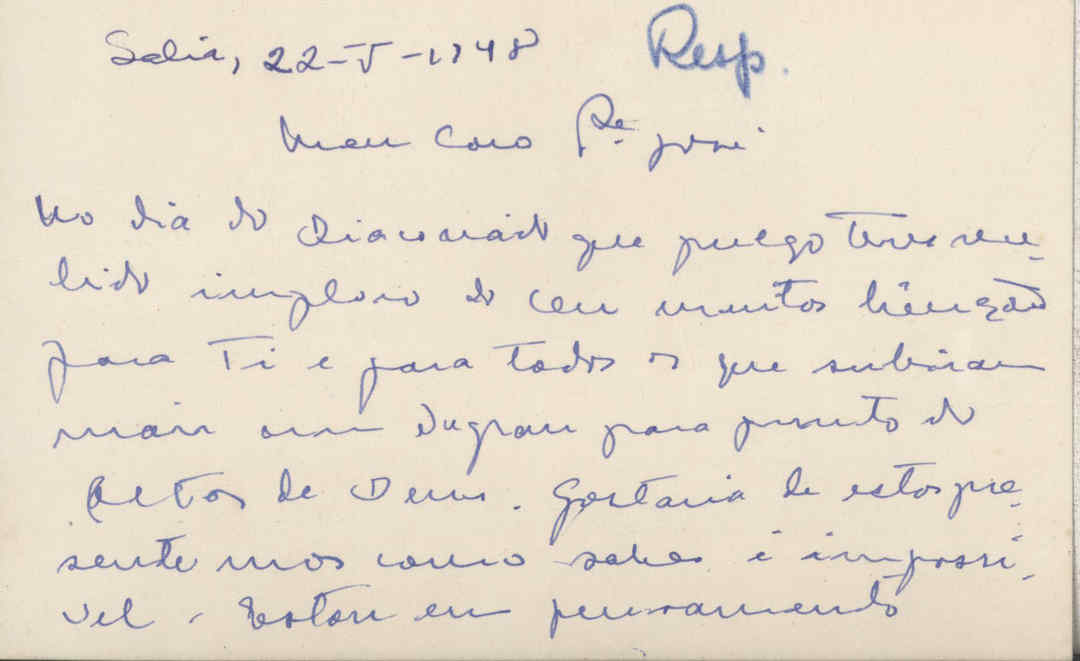 Selir, 22-V-1948 Resp.
Meu Caro Pe. José
No dia do Diaconado que julgo teres rece-
bido imploro do Ceu muitos bênçãos
para Ti e para todos os que subiram
mais um degrau para junto do
Altar de Deus. Gostaria de estar pre-
sente mas como sabes é impossi-
vel. Estou em pensamento